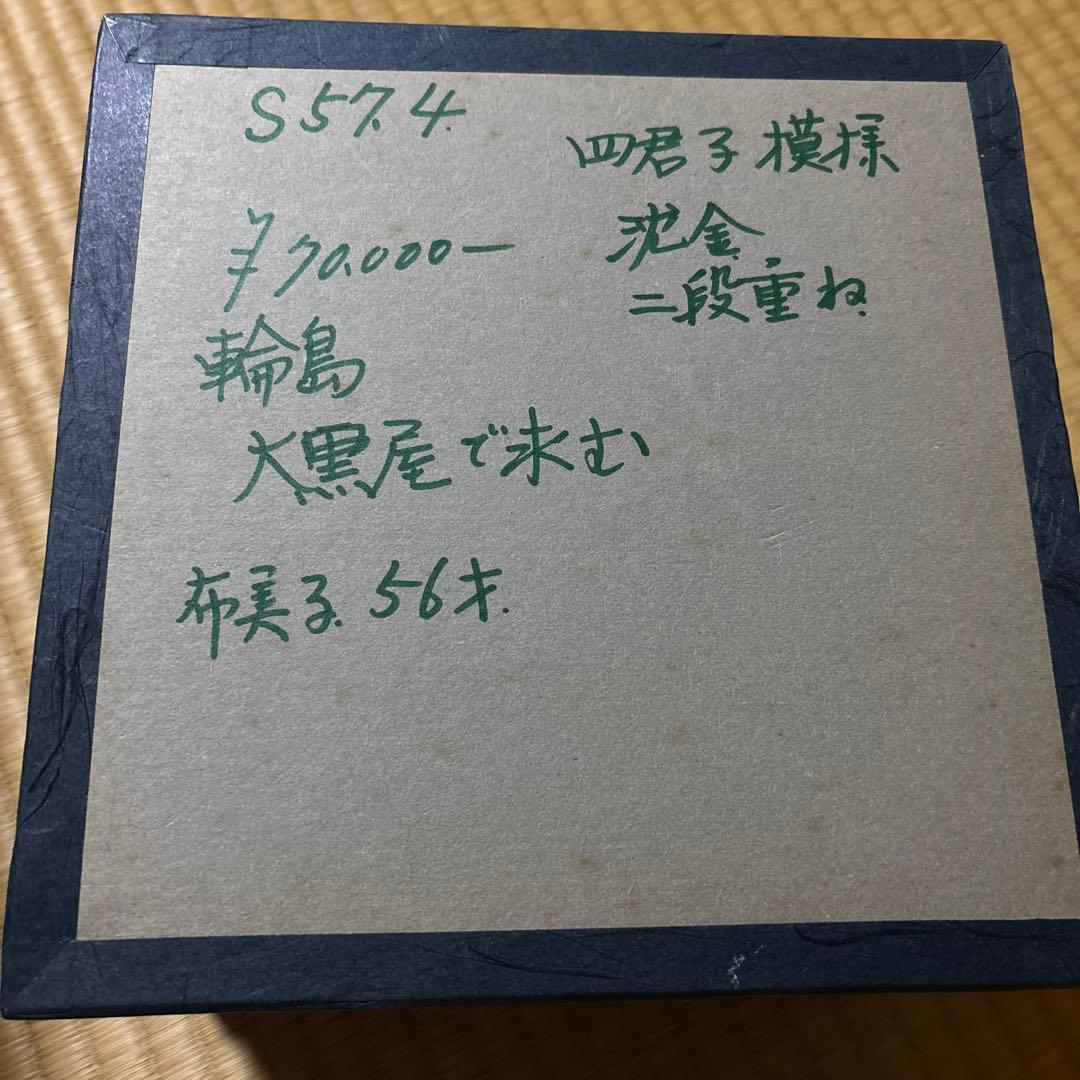 S57.4.
¥70.000ー
輪島
大黒屋で求む
布美子.56才.
四君子模様
沈金
二段重ね